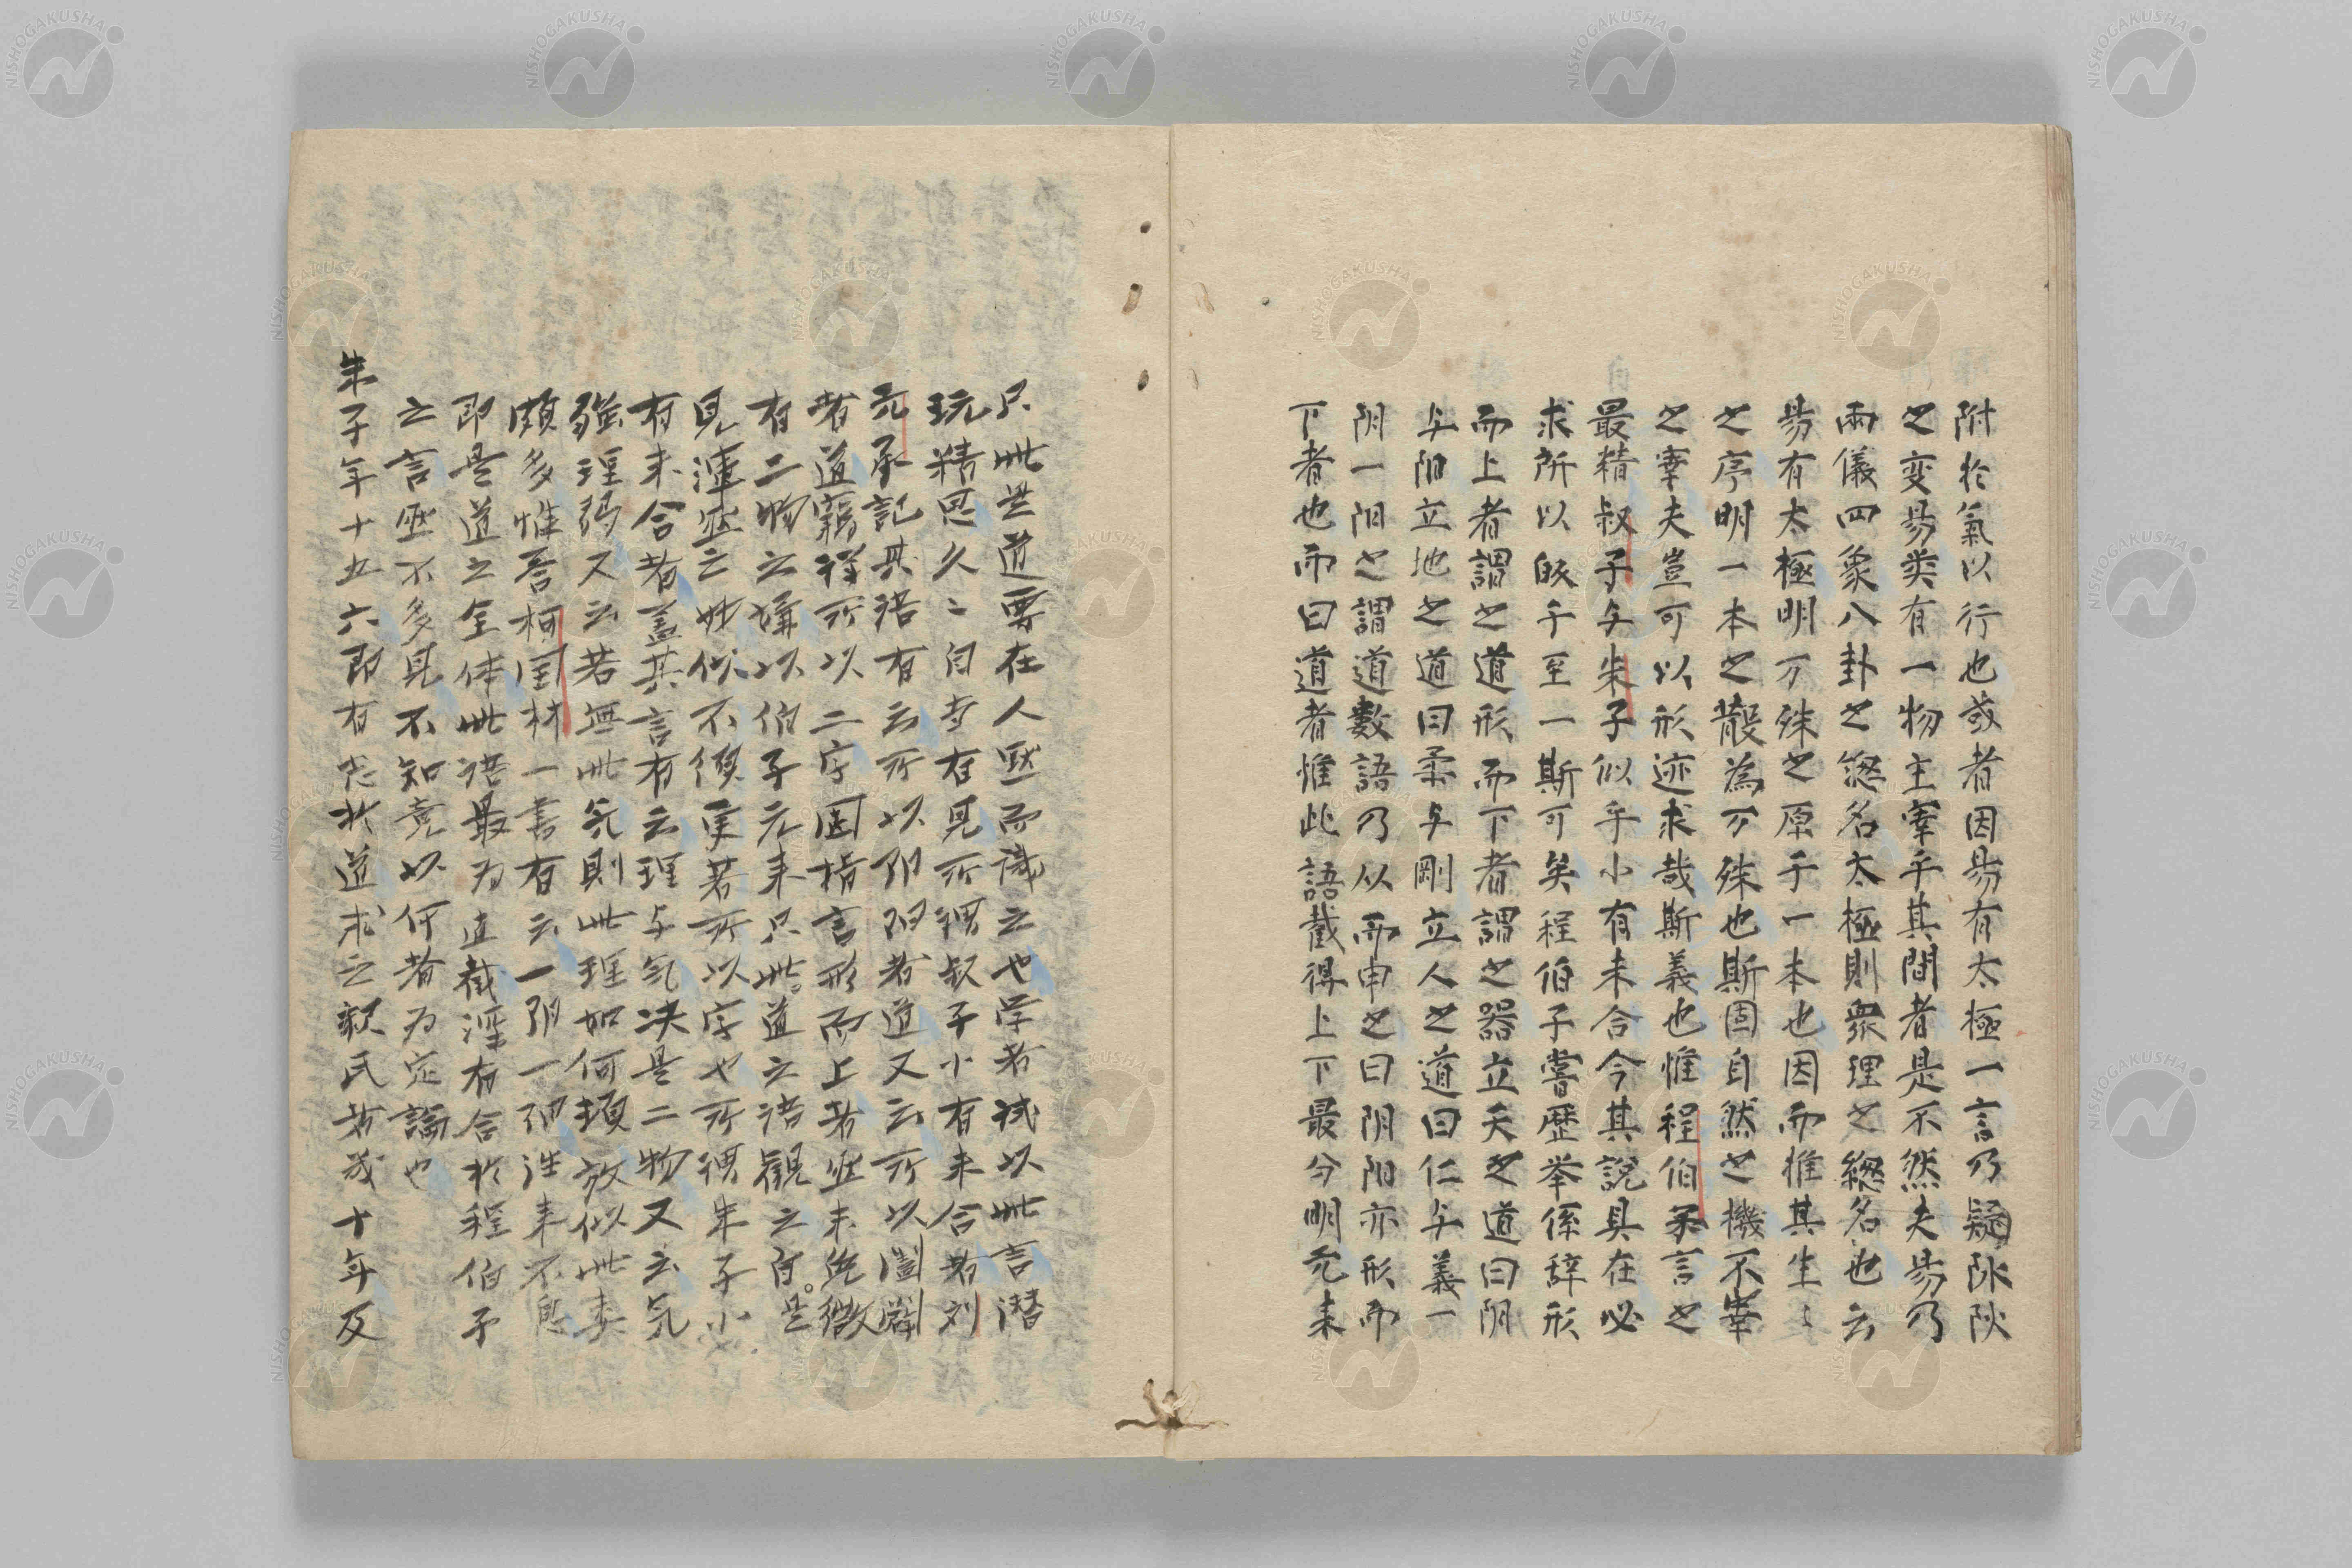 附於氣以行也或者因昜有太極一言乃疑阴阳
之变昜类有一物主宰乎其間者是不然夫昜乃
兩儀四象八卦之緫名太極則衆理之緫名也云
昜有太極明万殊之原于一本也因而推其生〻
之序明一本之散為万殊也斯固自然之機不宰
之宰夫豈可以形迹求哉斯義也惟程伯子言之
最精叔子与朱子似乎小有未合今其説具在必
求所以皈于至一斯可矣程伯子嘗歴挙係辞形
而上者謂之道形而下者謂之器立天之道曰阴
与阳立地之道曰柔与剛立人之道曰仁与義一
阴一阳之謂道數語乃从而申之曰阴阳亦形而
下者也而曰道者惟此語截得上下最分明元来
只此是道要在人默而识之也学者試以此言潜
玩精思久〻自当有見所谓叔子小有未合者刘
元承記其语有云所以阴阳者道又云所以闔闢
者道窃详所以二字固指言形而上者然未免微
有二物之嫌以伯子元来只此是道之语觀之自
見渾然之妙似不須更著所以字也所谓朱子小
有未合者盖其言有云理与气决是二物又云气
强理弱又云若無此气則此理如何頓放似此类
頗多惟荅柯国材一書有云一阴一阳往来不息
即是道之全体此语最为直截深有合於程伯子
之言然不多見不知竟以何者为定論也
朱子年十五六即有志於道求之釈氏者几十年及